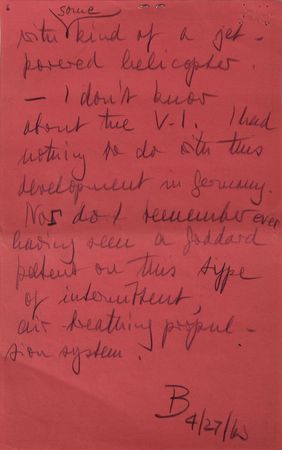 some
with kind of a jet-
powered helicopter.
— I don't know
about the V-1. I had
nothing to do with this
development in Germany.
Nor do I remember ever
having seen a Goddard
patent on this type
of intermittent,
air-breathing propul-
sion system.
B
4/27/